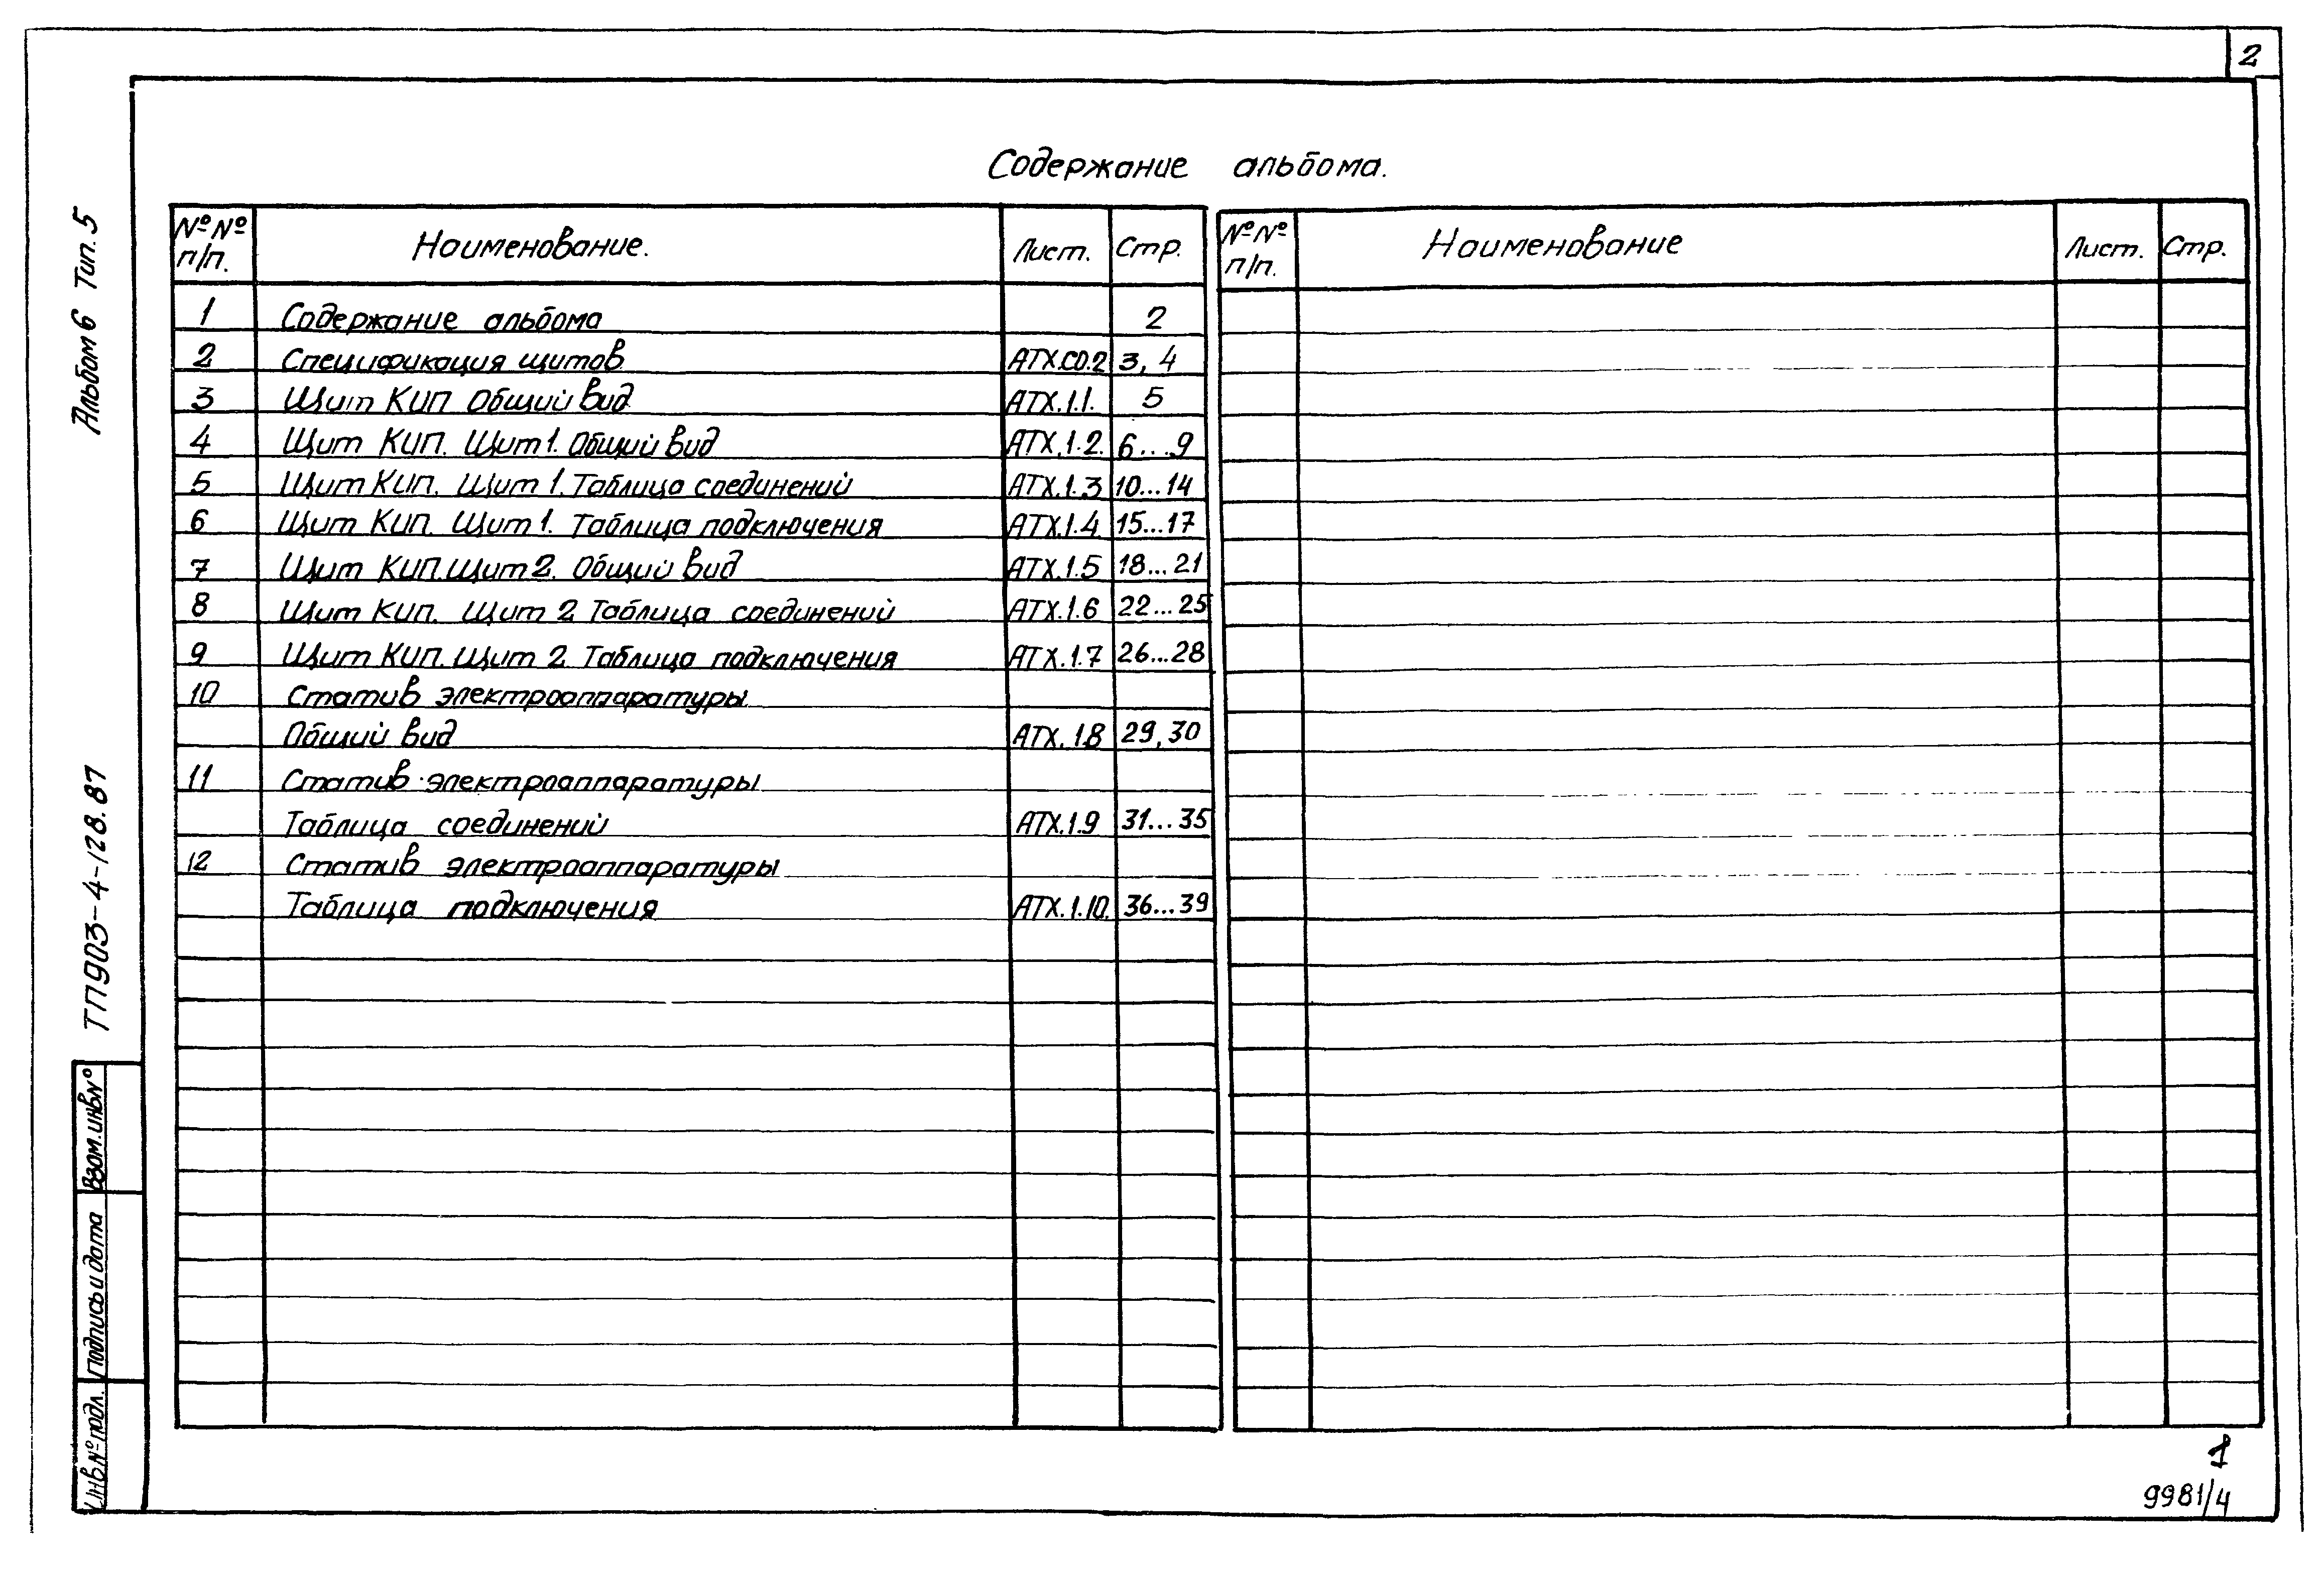 2
Содержание альбома.
№№ п/п. Наименование. Лист. Стр.
1 Содержание альбома 2
2 Спецификация щитов АТХ.СО.2 3, 4
3 Щит КИП Общий вид АТХ.1.1. 5
4 Щит КИП. Щит 1. Общий вид АТХ.1.2. 6...9
5 Щит КИП. Щит 1. Таблица соединений АТХ.1.3 10...14
6 Щит КИП. Щит 1. Таблица подключения АТХ.1.4 15...17
7 Щит КИП. Щит 2. Общий вид АТХ.1.5 18...21
8 Щит КИП. Щит 2 Таблица соединений АТХ.1.6 22...25
9 Щит КИП. Щит 2. Таблица подключения АТХ.1.7 26...28
10 Статив электроаппаратуры
Общий вид АТХ.1.8 29, 30
11 Статив электроаппаратуры
Таблица соединений АТХ.1.9 31...35
12 Статив электроаппаратуры
Таблица подключения АТХ.1.10. 36...39
№№ п/п. Наименование Лист. Стр.
Альбом 6 Тип. 5
ТП903-4-128.87
Взам.инв№
Подпись и дата
Инв№подл.
1
9981/4